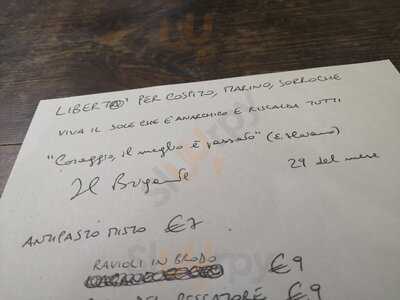 LIBERTÀ PER COSPITO, MARINO, SORROCHE
VIVA IL SOLE CHE È ANARCHICO E RISCALDA TUTTI
"Coraggio, il meglio è passato" (E. Flaiano)
Il Brigante 29 del mese
ANTIPASTO MISTO €7
RAVIOLI IN BRODO €9
DEL PESCATORE €9